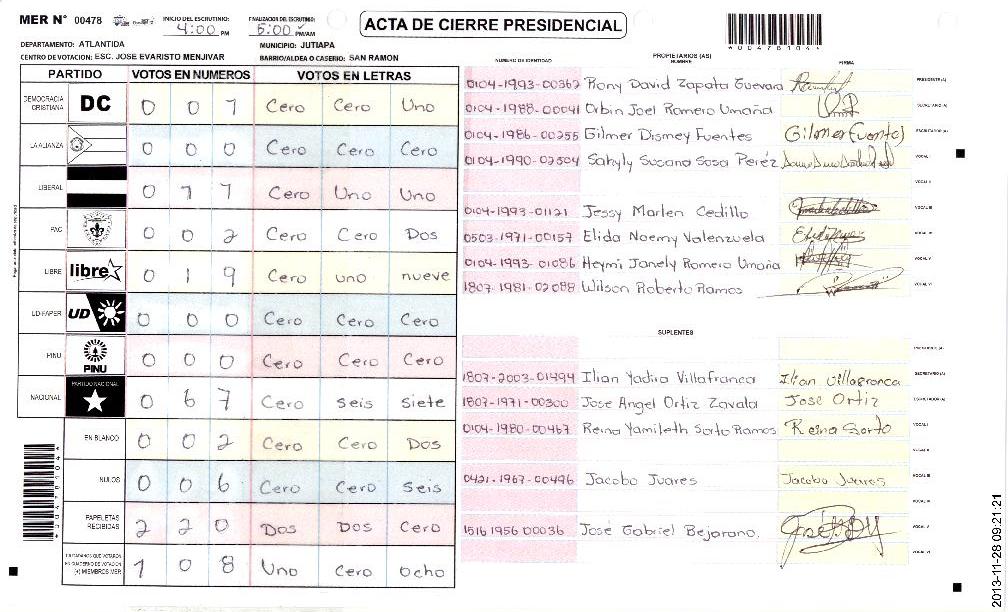 MER N° 00478
INICIO DEL ESCRUTINIO: 4:00 PM
FINALIZACION DEL ESCRUTINIO: 5:00 PM/AM
ACTA DE CIERRE PRESIDENCIAL
*00478104*
DEPARTAMENTO: ATLANTIDA MUNICIPIO: JUTIAPA
CENTRO DE VOTACION: ESC. JOSE EVARISTO MENJIVAR BARRIO/ALDEA O CASERIO: SAN RAMON
PARTIDO VOTOS EN NUMEROS VOTOS EN LETRAS
DEMOCRACIA CRISTIANA DC 0 0 1 Cero Cero Uno
LA ALIANZA 0 0 0 Cero Cero Cero
LIBERAL 0 1 1 Cero Uno Uno
PAC 0 0 2 Cero Cero Dos
LIBRE libre 0 1 9 Cero uno nueve
UD/FAPER UD 0 0 0 Cero Cero Cero
PINU PINU 0 0 0 Cero Cero Cero
NACIONAL PARTIDO NACIONAL 0 6 7 Cero seis siete
EN BLANCO 0 0 2 Cero Cero Dos
NULOS 0 0 6 Cero Cero Seis
PAPELETAS RECIBIDAS 2 2 0 Dos Dos Cero
CIUDADANOS QUE VOTARON EN CUADERNO DE VOTACION (+) MIEMBROS MER 1 0 8 Uno Cero Ocho
NUMERO DE IDENTIDAD PROPIETARIOS (AS) NOMBRE FIRMA
0104-1993-00367 Rony David Zapata Guevara PRESIDENTE (A)
0104-1988-00041 Orbin Joel Romero Umaña SECRETARIO (A)
0104-1986-00255 Gilmer Dismey Fuentes Gilmer Fuentes ESCRUTADOR (A)
0104-1990-02504 Sahyly Susana Sosa Peréz VOCAL I
VOCAL II
0104-1993-01121 Jessy Marlen Cedillo VOCAL III
0503-1971-00157 Elida Noemy Valenzuela VOCAL IV
0104-1993-01086 Heymi Janely Romero Umaña VOCAL V
1807-1981-02088 Wilson Roberto Ramos VOCAL VI
SUPLENTES
PRESIDENTE (A)
1807-2003-01494 Ilian Yadira Villafranca Ilian Villafranca SECRETARIO (A)
1807-1971-00300 Jose Angel Ortiz Zavala Jose Ortiz ESCRUTADOR (A)
0104-1980-00467 Reina Yamileth Sorto Ramos Reina Sorto VOCAL I
VOCAL II
0421-1967-00496 Jacobo Juares Jacobo Juares VOCAL III
VOCAL IV
1516 1956 00036 José Gabriel Bejarano. VOCAL V
VOCAL VI
2013-11-28 09:21:21